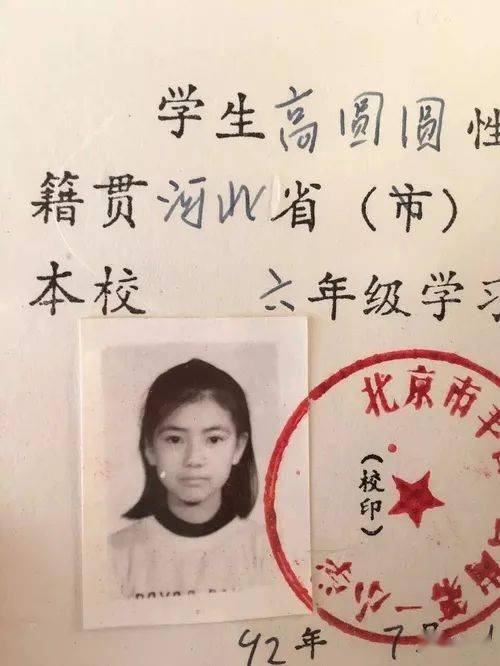 学生高圆圆性
籍贯河北省（市）
本校 六年级学习
北京市丰
第一
（校印）
92年 7月